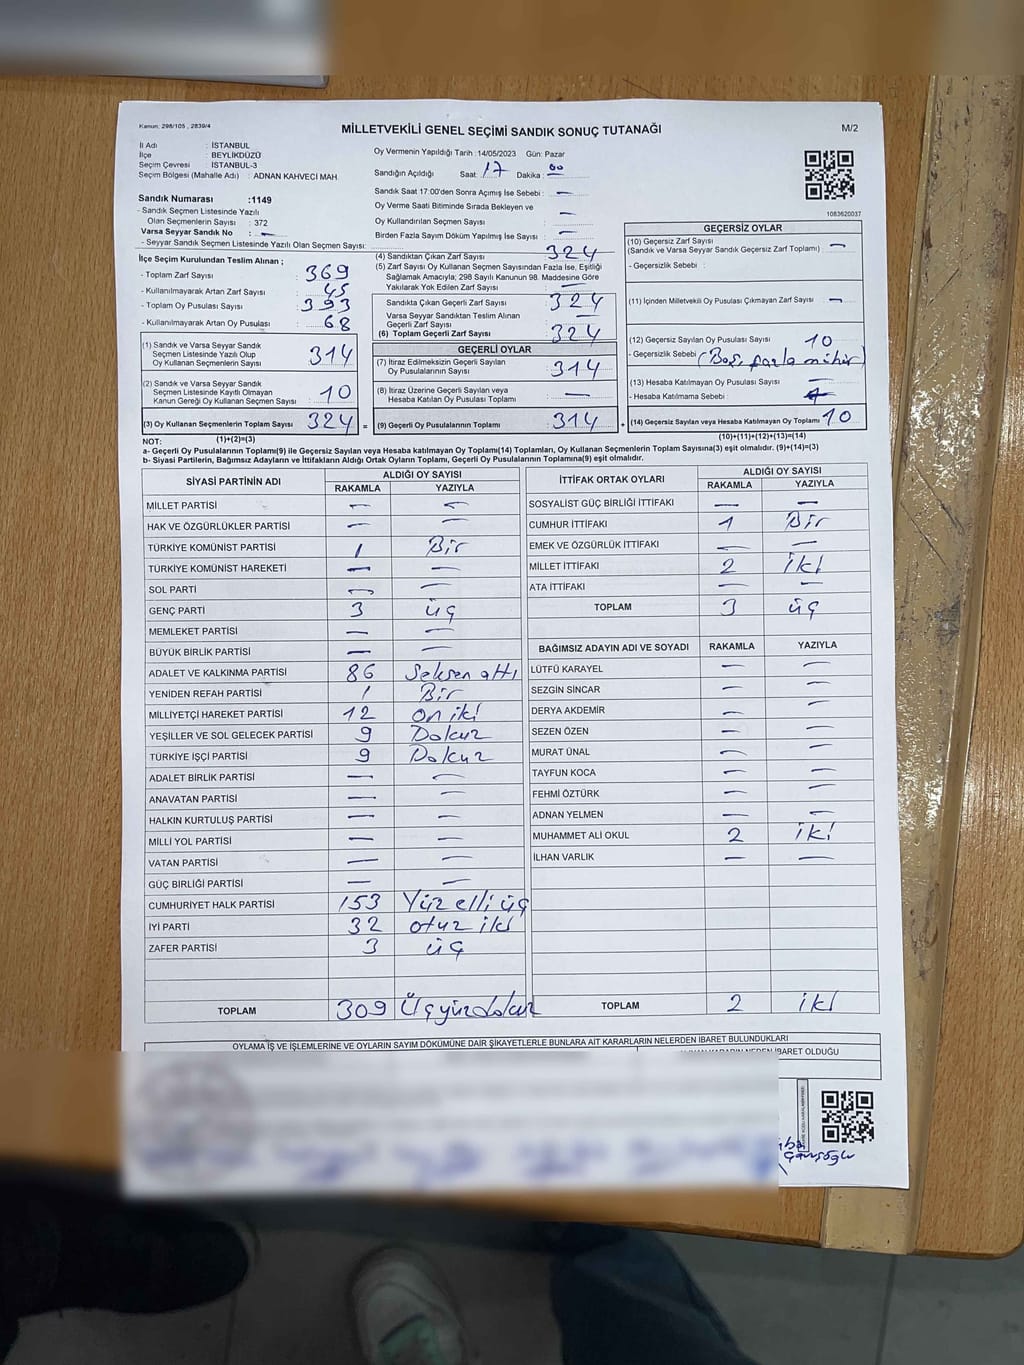 Kanun: 298/105 , 2839/4
MİLLETVEKİLİ GENEL SEÇİMİ SANDIK SONUÇ TUTANAĞI
M/2
İl Adı : İSTANBUL
İlçe : BEYLİKDÜZÜ
Seçim Çevresi : İSTANBUL-3
Seçim Bölgesi (Mahalle Adı) : ADNAN KAHVECİ MAH.
Sandık Numarası :1149
- Sandık Seçmen Listesinde Yazılı
Olan Seçmenlerin Sayısı : 372
Varsa Seyyar Sandık No : —
- Seyyar Sandık Seçmen Listesinde Yazılı Olan Seçmen Sayısı:
Oy Vermenin Yapıldığı Tarih :14/05/2023 Gün: Pazar
Sandığın Açıldığı Saat: 17 Dakika: 00
Sandık Saat 17:00'den Sonra Açımış İse Sebebi : —
Oy Verme Saati Bitiminde Sırada Bekleyen ve
Oy Kullandırılan Seçmen Sayısı : —
Birden Fazla Sayım Döküm Yapılmış İse Sayısı : —
1083620037
İlçe Seçim Kurulundan Teslim Alınan ;
- Toplam Zarf Sayısı : 369
- Kullanılmayarak Artan Zarf Sayısı : 45
- Toplam Oy Pusulası Sayısı : 393
- Kullanılmayarak Artan Oy Pusulası : 68
(1) Sandık ve Varsa Seyyar Sandık
Seçmen Listesinde Yazılı Olup
Oy Kullanan Seçmenlerin Sayısı : 314
(2) Sandık ve Varsa Seyyar Sandık
Seçmen Listesinde Kayıtlı Olmayan
Kanun Gereği Oy Kullanan Seçmen Sayısı : 10
(3) Oy Kullanan Seçmenlerin Toplam Sayısı : 324 =
(4) Sandıktan Çıkan Zarf Sayısı : 324
(5) Zarf Sayısı Oy Kullanan Seçmen Sayısından Fazla İse, Eşitliği
Sağlamak Amacıyla; 298 Sayılı Kanunun 98. Maddesine Göre
Yakılarak Yok Edilen Zarf Sayısı : —
Sandıkta Çıkan Geçerli Zarf Sayısı : 324
Varsa Seyyar Sandıktan Teslim Alınan
Geçerli Zarf Sayısı : —
(6) Toplam Geçerli Zarf Sayısı : 324
GEÇERLİ OYLAR
(7) İtiraz Edilmeksizin Geçerli Sayılan
Oy Pusulalarının Sayısı : 314
(8) İtiraz Üzerine Geçerli Sayılan veya
Hesaba Katılan Oy Pusulası Toplamı : —
(9) Geçerli Oy Pusulalarının Toplamı : 314 +
GEÇERSİZ OYLAR
(10) Geçersiz Zarf Sayısı
(Sandık ve Varsa Seyyar Sandık Geçersiz Zarf Toplamı) : —
- Geçersizlik Sebebi :
(11) İçinden Milletvekili Oy Pusulası Çıkmayan Zarf Sayısı : —
(12) Geçersiz Sayılan Oy Pusulası Sayısı : 10
- Geçersizlik Sebebi : (Boş, fazla mühür)
(13) Hesaba Katılmayan Oy Pusulası Sayısı : —
- Hesaba Katılmama Sebebi :
(14) Geçersiz Sayılan veya Hesaba Katılmayan Oy Toplamı : 10
NOT: (1)+(2)=(3) (10)+(11)+(12)+(13)=(14)
a- Geçerli Oy Pusulalarının Toplamı(9) ile Geçersiz Sayılan veya Hesaba katılmayan Oy Toplamı(14) Toplamları, Oy Kullanan Seçmenlerin Toplam Sayısına(3) eşit olmalıdır. (9)+(14)=(3)
b- Siyasi Partilerin, Bağımsız Adayların ve İttifakların Aldığı Ortak Oyların Toplamı, Geçerli Oy Pusulalarının Toplamına(9) eşit olmalıdır.
SİYASİ PARTİNİN ADI ALDIĞI OY SAYISI
RAKAMLA YAZIYLA
MİLLET PARTİSİ — —
HAK VE ÖZGÜRLÜKLER PARTİSİ — —
TÜRKİYE KOMÜNİST PARTİSİ 1 Bir
TÜRKİYE KOMÜNİST HAREKETİ — —
SOL PARTİ — —
GENÇ PARTİ 3 üç
MEMLEKET PARTİSİ — —
BÜYÜK BİRLİK PARTİSİ — —
ADALET VE KALKINMA PARTİSİ 86 Seksen altı
YENİDEN REFAH PARTİSİ 1 Bir
MİLLİYETÇİ HAREKET PARTİSİ 12 on iki
YEŞİLLER VE SOL GELECEK PARTİSİ 9 Dokuz
TÜRKİYE İŞÇİ PARTİSİ 9 Dokuz
ADALET BİRLİK PARTİSİ — —
ANAVATAN PARTİSİ — —
HALKIN KURTULUŞ PARTİSİ — —
MİLLİ YOL PARTİSİ — —
VATAN PARTİSİ — —
GÜÇ BİRLİĞİ PARTİSİ — —
CUMHURİYET HALK PARTİSİ 153 Yüz elli üç
İYİ PARTİ 32 otuz iki
ZAFER PARTİSİ 3 üç
TOPLAM 309 Üçyüzdokuz
İTTİFAK ORTAK OYLARI ALDIĞI OY SAYISI
RAKAMLA YAZIYLA
SOSYALİST GÜÇ BİRLİĞİ İTTİFAKI — —
CUMHUR İTTİFAKI 1 Bir
EMEK VE ÖZGÜRLÜK İTTİFAKI — —
MİLLET İTTİFAKI 2 iki
ATA İTTİFAKI — —
TOPLAM 3 üç
BAĞIMSIZ ADAYIN ADI VE SOYADI RAKAMLA YAZIYLA
LÜTFÜ KARAYEL — —
SEZGİN SİNCAR — —
DERYA AKDEMİR — —
SEZEN ÖZEN — —
MURAT ÜNAL — —
TAYFUN KOCA — —
FEHMİ ÖZTÜRK — —
ADNAN YELMEN — —
MUHAMMET ALİ OKUL 2 iki
İLHAN VARLIK — —
TOPLAM 2 iki
OYLAMA İŞ VE İŞLEMLERİNE VE OYLARIN SAYIM DÖKÜMÜNE DAİR ŞİKAYETLERLE BUNLARA AİT KARARLARIN NELERDEN İBARET BULUNDUKLARI
KARARIN NEDEN İBARET OLDUĞU